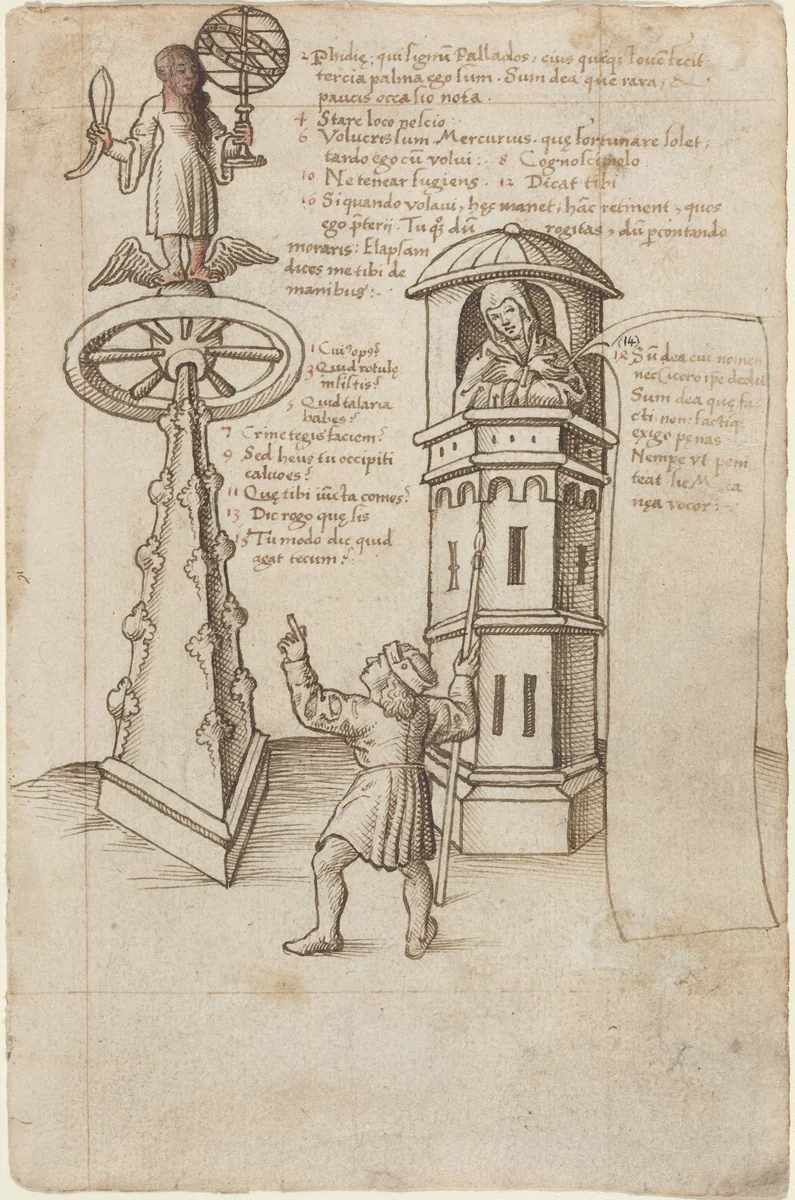 2 Phidię: qui signū Pallados, eius quęq; Iouē fecit
tercia palma ego sum. Sum dea que rara,
paucis occasio nota.
4 Stare loco nescio:
6 Volucris sum. Mercurius. quę fortunare solet,
tardo ego cū volui:. 8 Cognosci nolo.
10 Ne tenear fugiens. 12 Dicat tibi
16 Si quando volaui, hęc manet, hāc retinent, quos
ego p̄terij. Tu q; dū rogitas, dū p̱contando
moraris: Elapsam
dices me tibi de
manibus:.
1 Cui' op'?
3 Quid rotulę
insistis?
5 Quid talaria
habes?
7 Crine tegis faciem?
9 Sed heus tu occipiti
calua es?
11 Quę tibi iūcta comes?
13 Dic rogo quę sis
15 Tu modo dic quid
agat tecum?
(14)
Sū dea cui nomen
nec Cicero ip̄e dedit
Sum dea quę fa-
cti non factiq;
exigo penas
Nempe vt peni
teat sic Meta
nęa vocor:.